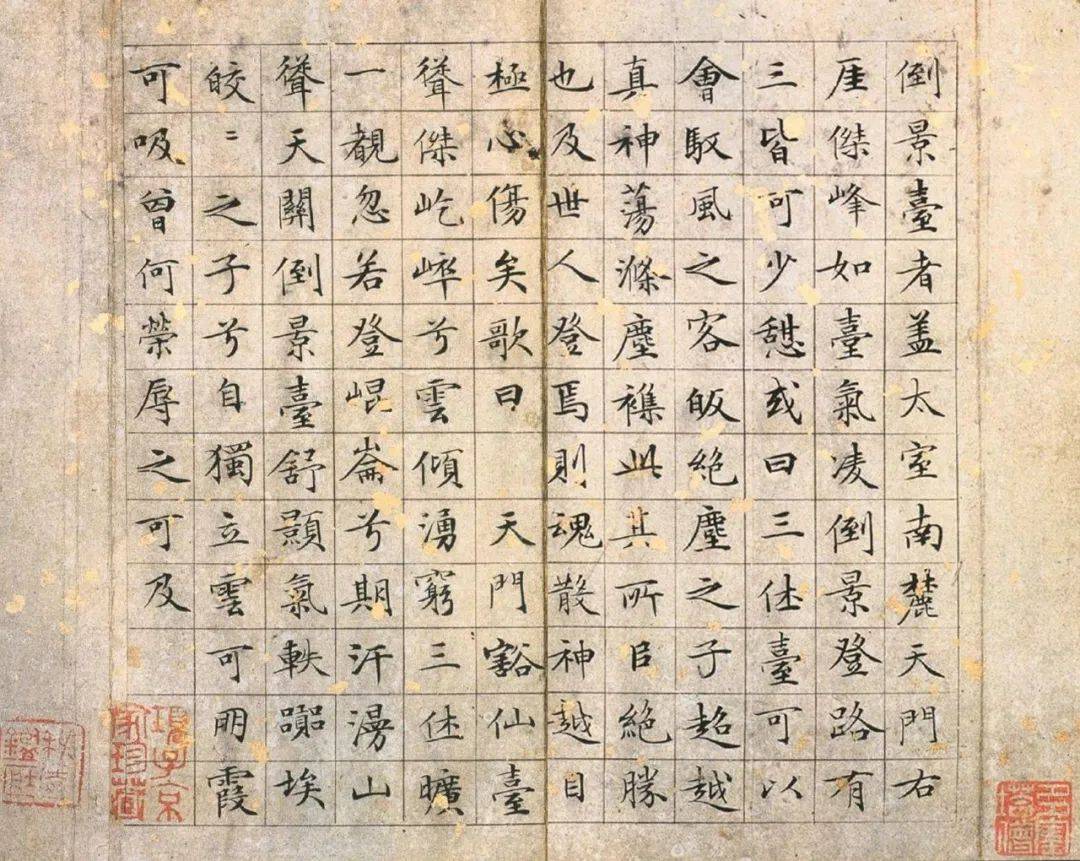 倒景臺者盖太室南麓天門右
厓傑峰如臺氣凌倒景登路有
三皆可少憇或曰三休臺可以
會馭風之客皈絶塵之子超越
真神蕩滌塵襍此其所㠯絶勝
也及世人登焉則魂散神越目
極心傷矣歌曰　天門豁仙臺
聳傑屹崒兮雲傾湧窮三休曠
一覩忽若登崐崙兮期汗漫山
聳天關倒景臺舒顥氣軼躢埃
皎〻之子兮自獨立雲可朋霞
可吸曾何榮辱之可及
項子京家珍藏